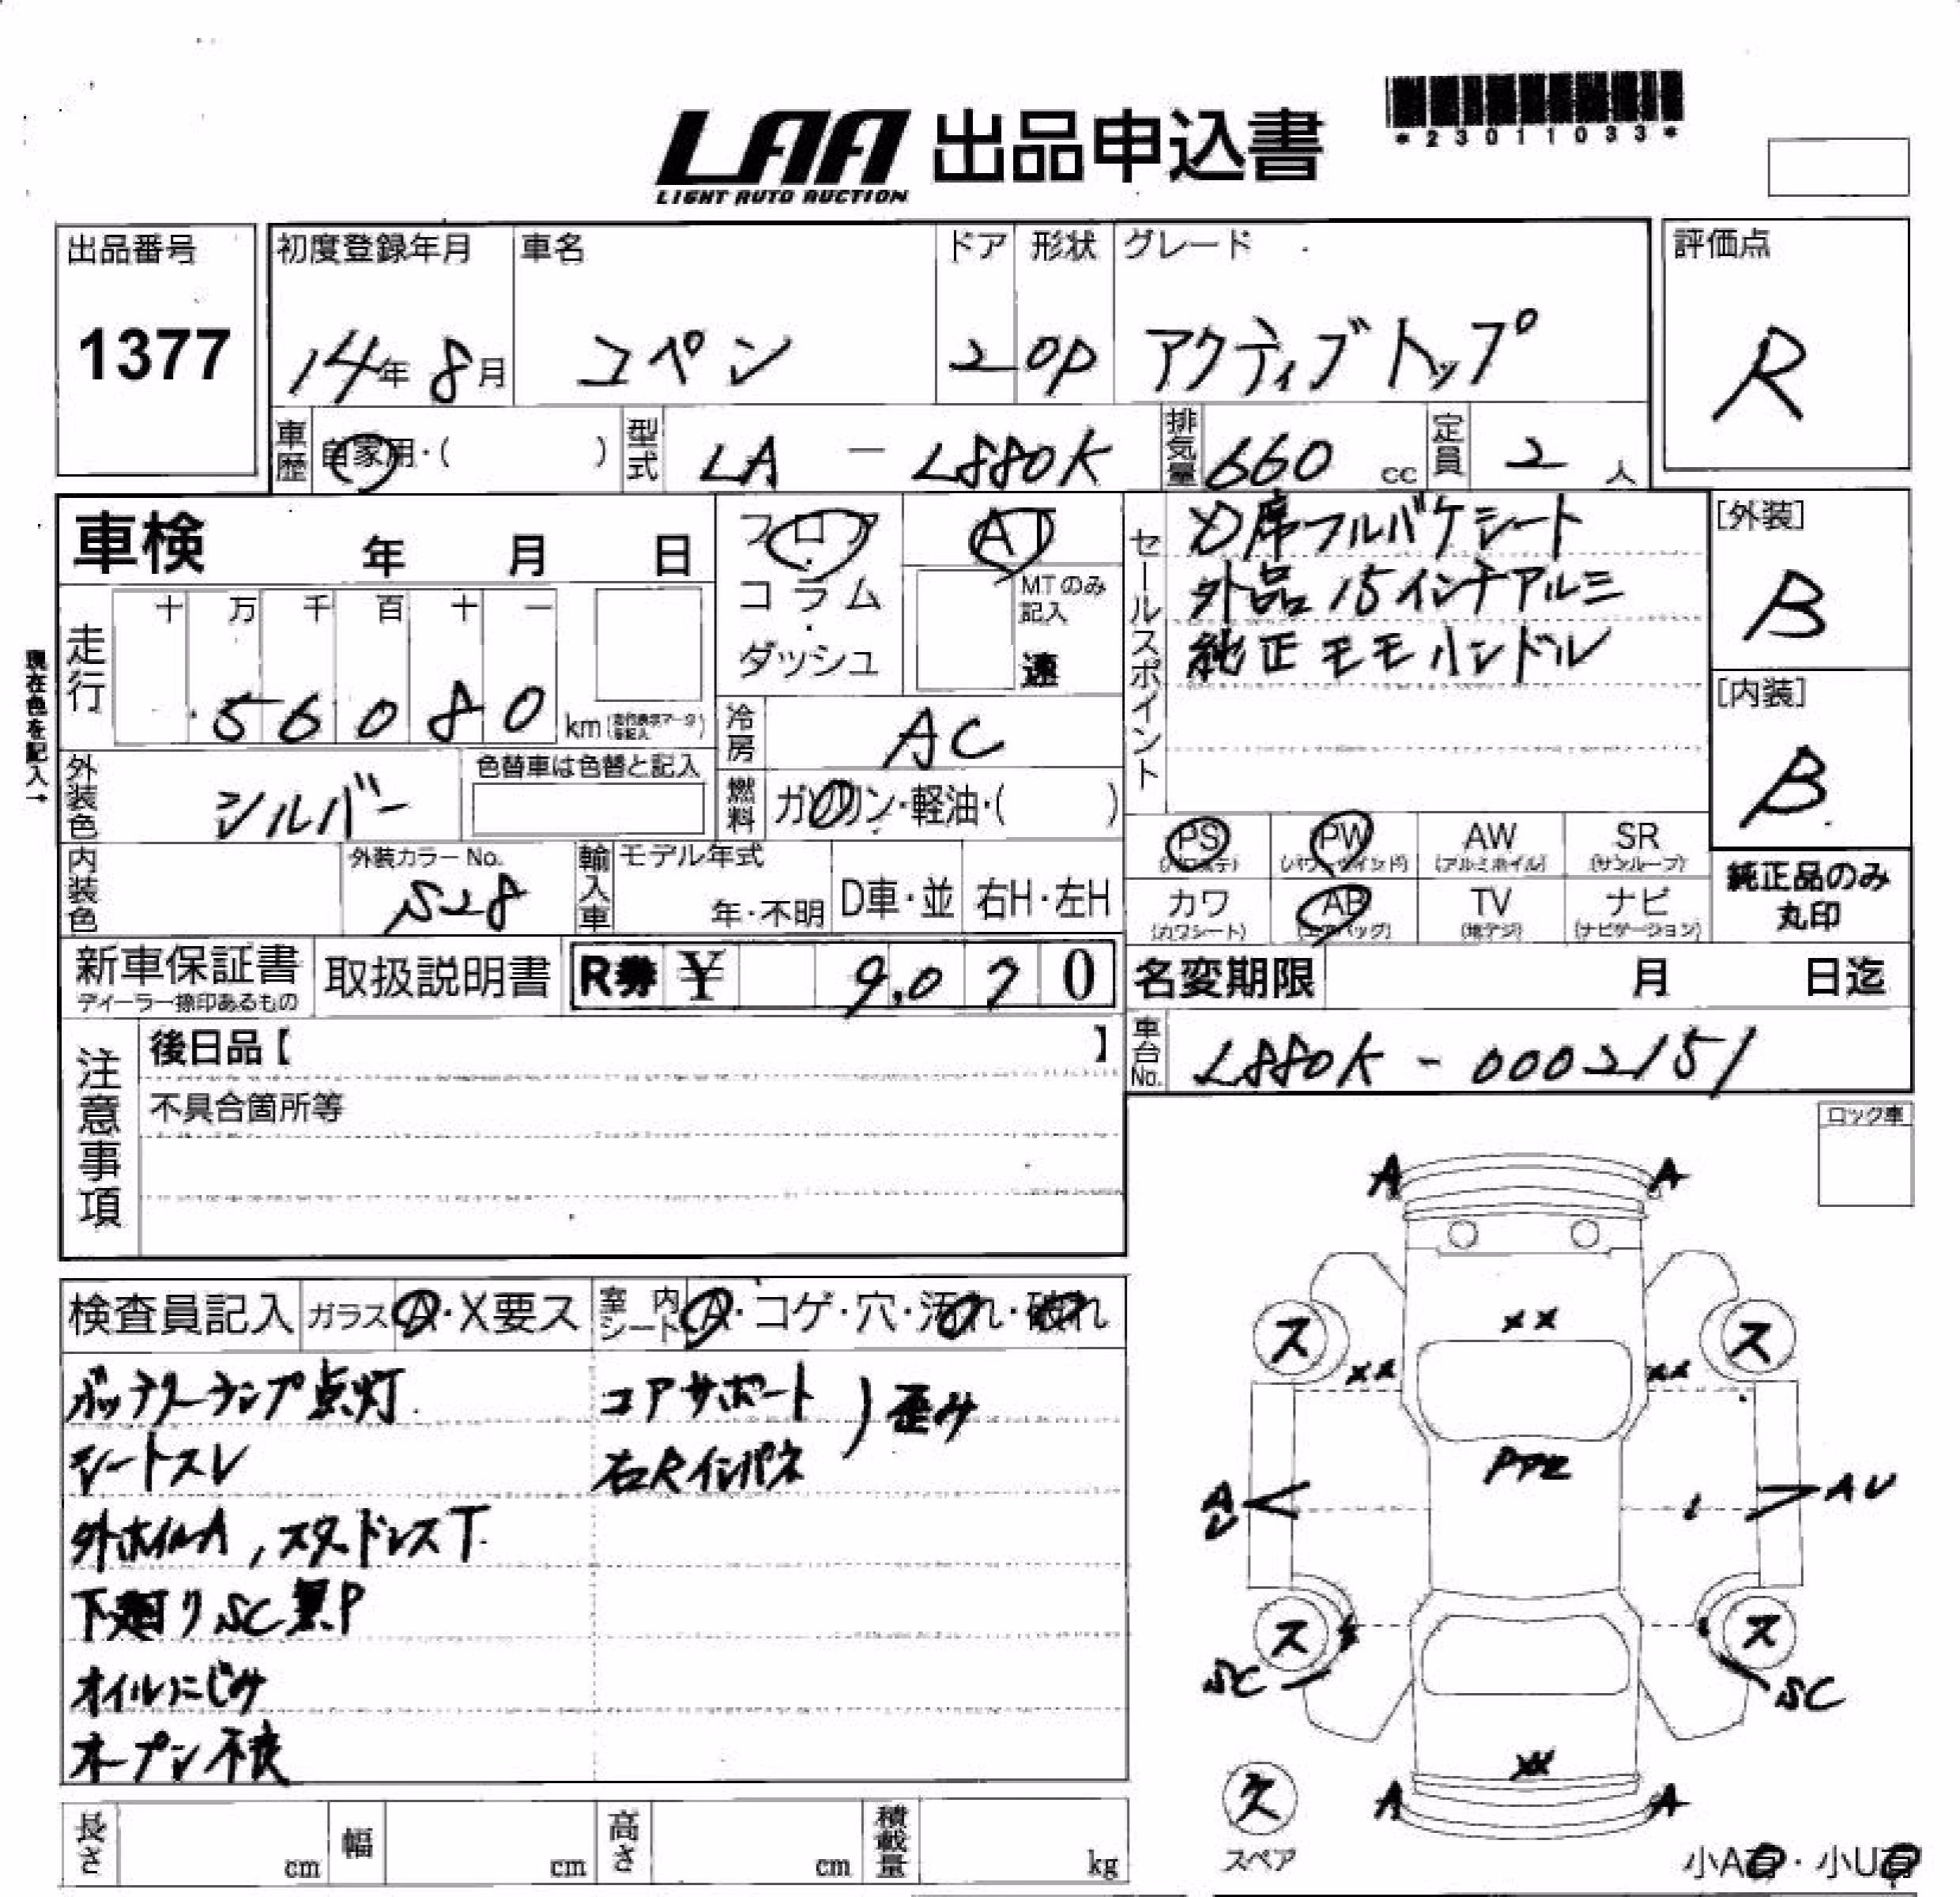 LAA 出品申込書
LIGHT AUTO AUCTION
*23011033*
出品番号 初度登録年月 車名 ドア 形状 グレード 評価点
1377 14年 8月 コペン 2 OP アクティブトップ R
車歴 自家用・( ) 型式 LA - L880K 排気量 660 cc 定員 2 人
車検 年 月 日
フロア・コラム・ダッシュ
AT
MTのみ記入
速
セールスポイント
席フルバケシート
外品15インチアルミ
純正モモハンドル
[外装]
B
[内装]
B
現在色を記入→
走行 十 万 千 百 十 一
56080 km
冷房 AC
燃料 ガソリン・軽油・( )
外装色 シルバー 色替車は色替と記入
内装色 外装カラーNo. S28
輸入車 モデル年式 年・不明 D車・並 右H・左H
PS (パワステ) PW (パワーウインド) AW (アルミホイル) SR (サンルーフ)
カワ (カワシート) AB (エアバッグ) TV (地デジ) ナビ (ナビゲーション)
純正品のみ
丸印
新車保証書 ディーラー捺印あるもの 取扱説明書 R券 ¥ 9,070
名変期限 月 日迄
車台No. L880K - 0002151
注意事項
後日品【 】
不具合箇所等
ロック車
検査員記入 ガラス A・X要ス 室内シート A・コゲ・穴・汚れ・破れ
バッテリーランプ点灯 コアサポート ) 歪み
シートスレ 右Rインパネ
外ホイルA, スタッドレスT
下廻りSC黒P
オイルにじみ
オープン不良
A A
ス ス
XX
XX XX
PTR
A U AU
ス ス
SC SC
XX
A A
欠
スペア
小A有・小U有
長さ cm 幅 cm 高さ cm 積載量 kg